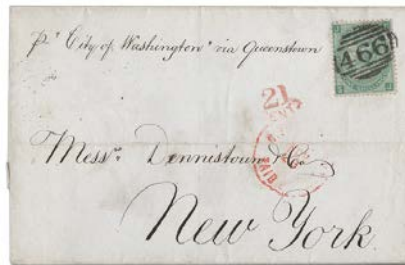 pr "City of Washington" via Queenstown
466
21
CENTS
PAID
Messrs. Dennistoun & Co.
New York.